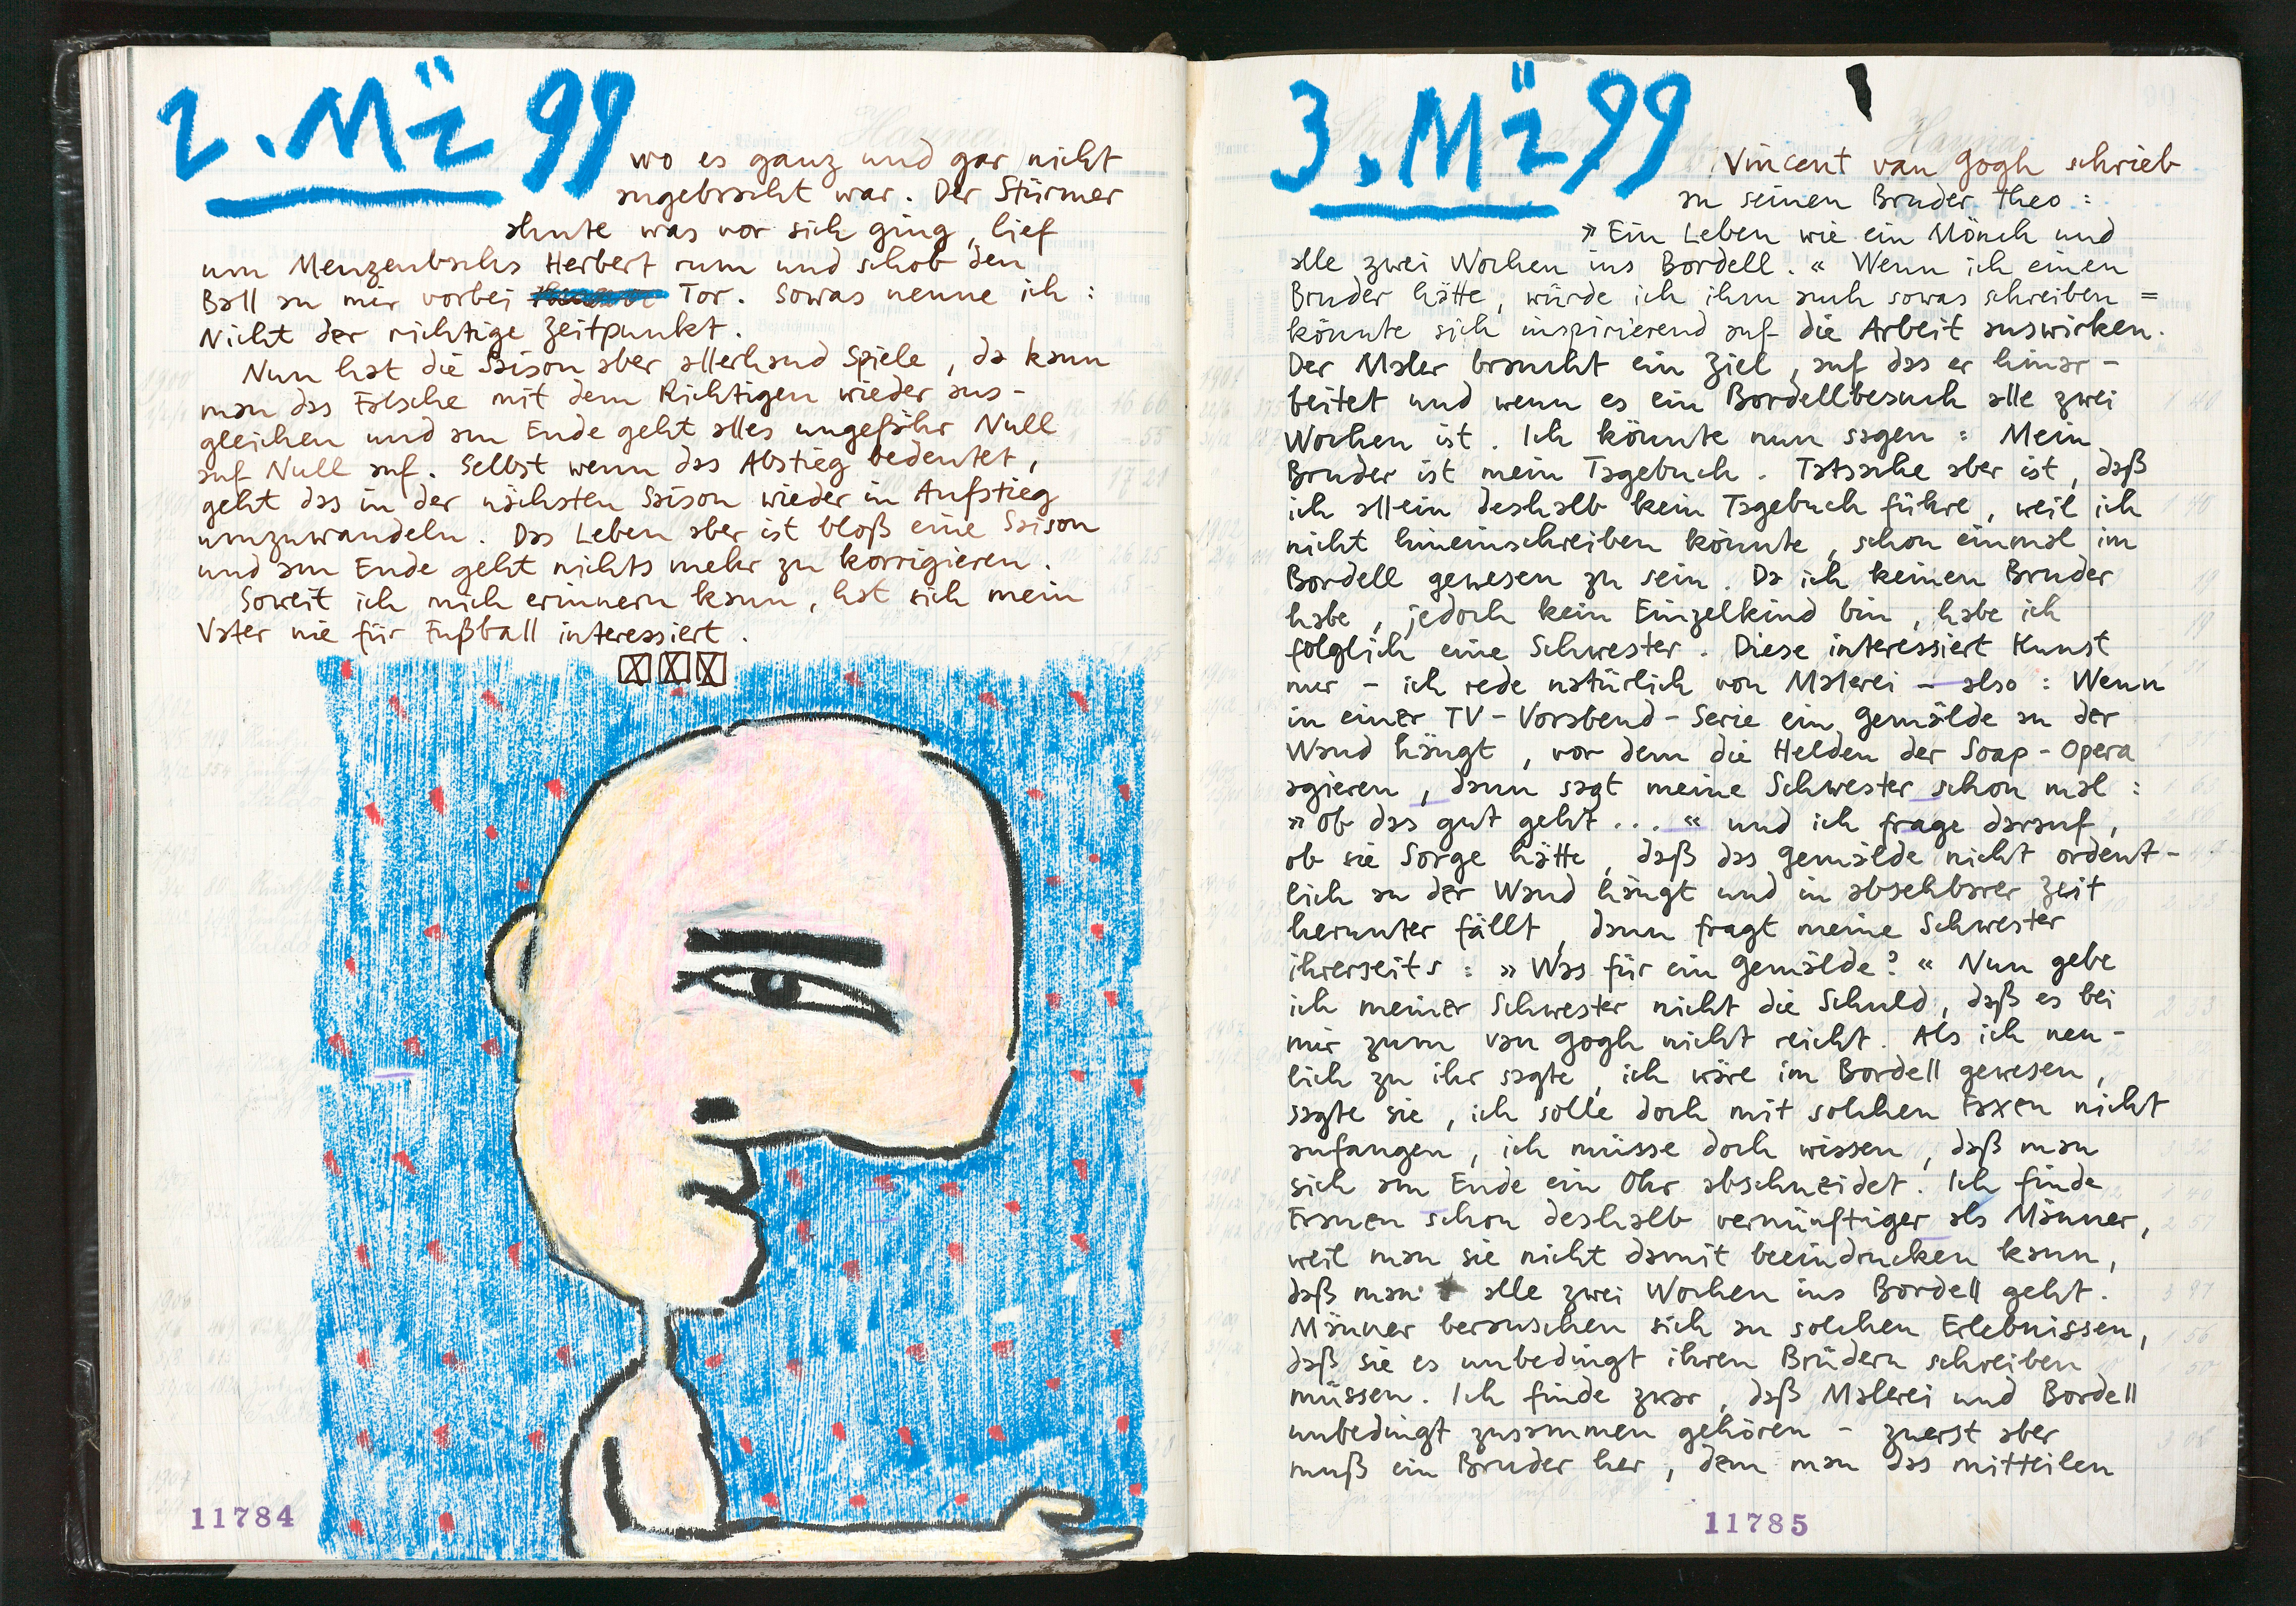 2. Mä 99
wo es ganz und gar nicht
angebracht war. Der Stürmer
ahnte was vor sich ging, lief
um Menzenbachs Herbert rum und schob den
Ball an mir vorbei Tor. Sowas nenne ich:
Nicht der richtige Zeitpunkt.
Nun hat die Saison aber allerhand Spiele, da kann
man das Falsche mit dem Richtigen wieder aus-
gleichen und am Ende geht alles ungefähr Null
auf Null auf. Selbst wenn das Abstieg bedeutet,
geht das in der nächsten Saison wieder in Aufstieg
umzuwandeln. Das Leben aber ist bloß eine Saison
und am Ende geht nichts mehr zu korrigieren.
Soweit ich mich erinnern kann, hat sich mein
Vater nie für Fußball interessiert.
11784
3. Mä 99
Vincent van Gogh schrieb
an seinen Bruder Theo:
»Ein Leben wie ein Mönch und
alle zwei Wochen ins Bordell.« Wenn ich einen
Bruder hätte, würde ich ihm auch sowas schreiben =
könnte sich inspirierend auf die Arbeit auswirken.
Der Maler braucht ein Ziel, auf das er hinar-
beitet und wenn es ein Bordellbesuch alle zwei
Wochen ist. Ich könnte nun sagen: Mein
Bruder ist mein Tagebuch. Tatsache aber ist, daß
ich allein deshalb kein Tagebuch führe, weil ich
nicht hineinschreiben könnte, schon einmal im
Bordell gewesen zu sein. Da ich keinen Bruder
habe, jedoch kein Einzelkind bin, habe ich
folglich eine Schwester. Diese interessiert Kunst
nur - ich rede natürlich von Malerei - also: Wenn
in einer TV-Vorabend-Serie ein Gemälde an der
Wand hängt, vor dem die Helden der Soap-Opera
agieren, dann sagt meine Schwester schon mal:
»Ob das gut geht...« und ich frage darauf,
ob sie Sorge hätte, daß das Gemälde nicht ordent-
lich an der Wand hängt und in absehbarer Zeit
herunter fällt, dann fragt meine Schwester
ihrerseits: »Was für ein Gemälde?« Nun gebe
ich meiner Schwester nicht die Schuld, daß es bei
mir zum van Gogh nicht reicht. Als ich neu-
lich zu ihr sagte, ich wäre im Bordell gewesen,
sagte sie, ich solle doch mit solchen Faxen nicht
anfangen, ich müsse doch wissen, daß man
sich am Ende ein Ohr abschneidet. Ich finde
Frauen schon deshalb vernünftiger als Männer,
weil man sie nicht damit beeindrucken kann,
daß man alle zwei Wochen ins Bordell geht.
Männer berauschen sich an solchen Erlebnissen,
daß sie es unbedingt ihren Brüdern schreiben
müssen. Ich finde zwar, daß Malerei und Bordell
unbedingt zusammen gehören - zuerst aber
muß ein Bruder her, dem man das mitteilen
11785